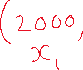 (2000,
x₁